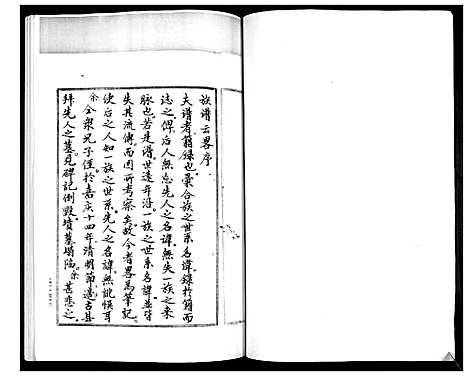 族谱云畧序
夫谱者籍錄也彙合一族之世系名諱錄於籍而
誌之俾后人無忘先人之名諱無失一族之世
脉也若是谱世遠年沿一族之世系名諱並皆
失其流傳而因所考察矣故今者畧為筆記
使后之人知一族之世系先人之名諱無訛悮耳
余仝衆兄子侄於嘉庆十四年清明節邁古县
拜先人之墓見碑記倒毀墳墓塌陷余甚悲之